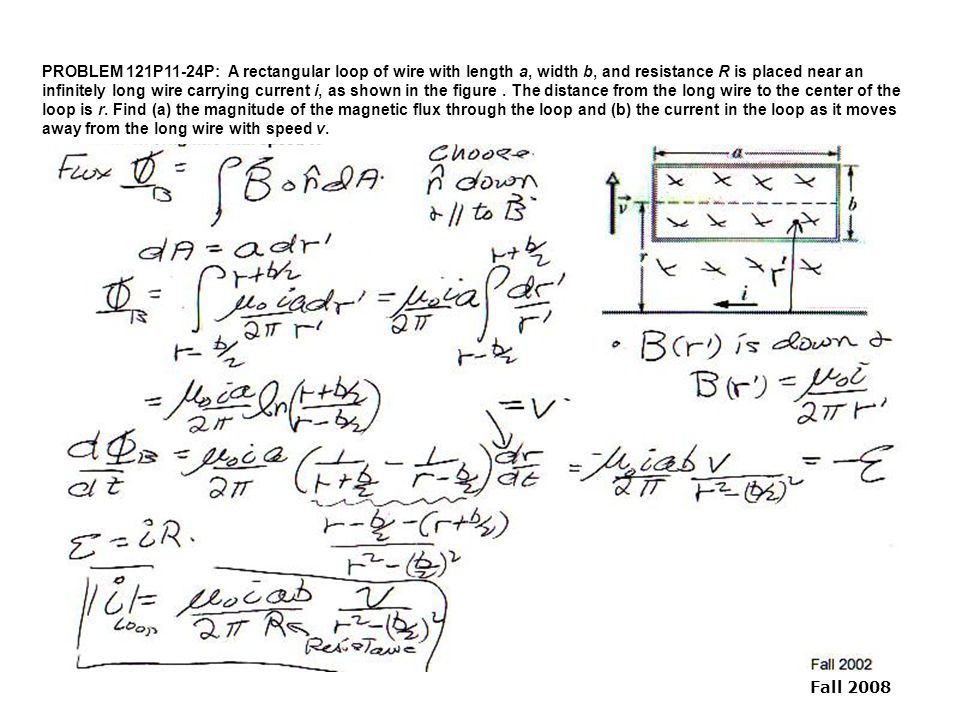 PROBLEM 121P11-24P: A rectangular loop of wire with length a, width b, and resistance R is placed near an
infinitely long wire carrying current i, as shown in the figure . The distance from the long wire to the center of the
loop is r. Find (a) the magnitude of the magnetic flux through the loop and (b) the current in the loop as it moves
away from the long wire with speed v.
Flux Φ_B = ∫ B⃗ ∘ n̂ dA.
Choose
n̂ down
& // to B⃗
dA = a dr'
Φ_B = ∫_{r-b/2}^{r+b/2} μ₀ i a dr' / 2π r' = μ₀ i a / 2π ∫_{r-b/2}^{r+b/2} dr' / r'
= μ₀ i a / 2π ln((r+b/2) / (r-b/2))
a
v
b
r
r'
i
• B(r') is down &
B(r') = μ₀ i / 2π r'
= v.
dΦ_B / dt = μ₀ i a / 2π (1 / (r+b/2) - 1 / (r-b/2)) dr / dt = -μ₀ i a b / 2π v / (r² - (b/2)²) = -ε
r - b/2 - (r + b/2) / r² - (b/2)²
ε = iR.
|i| = μ₀ i a b / 2π R v / (r² - (b/2)²)
Loop
Resistance
Fall 2002
Fall 2008